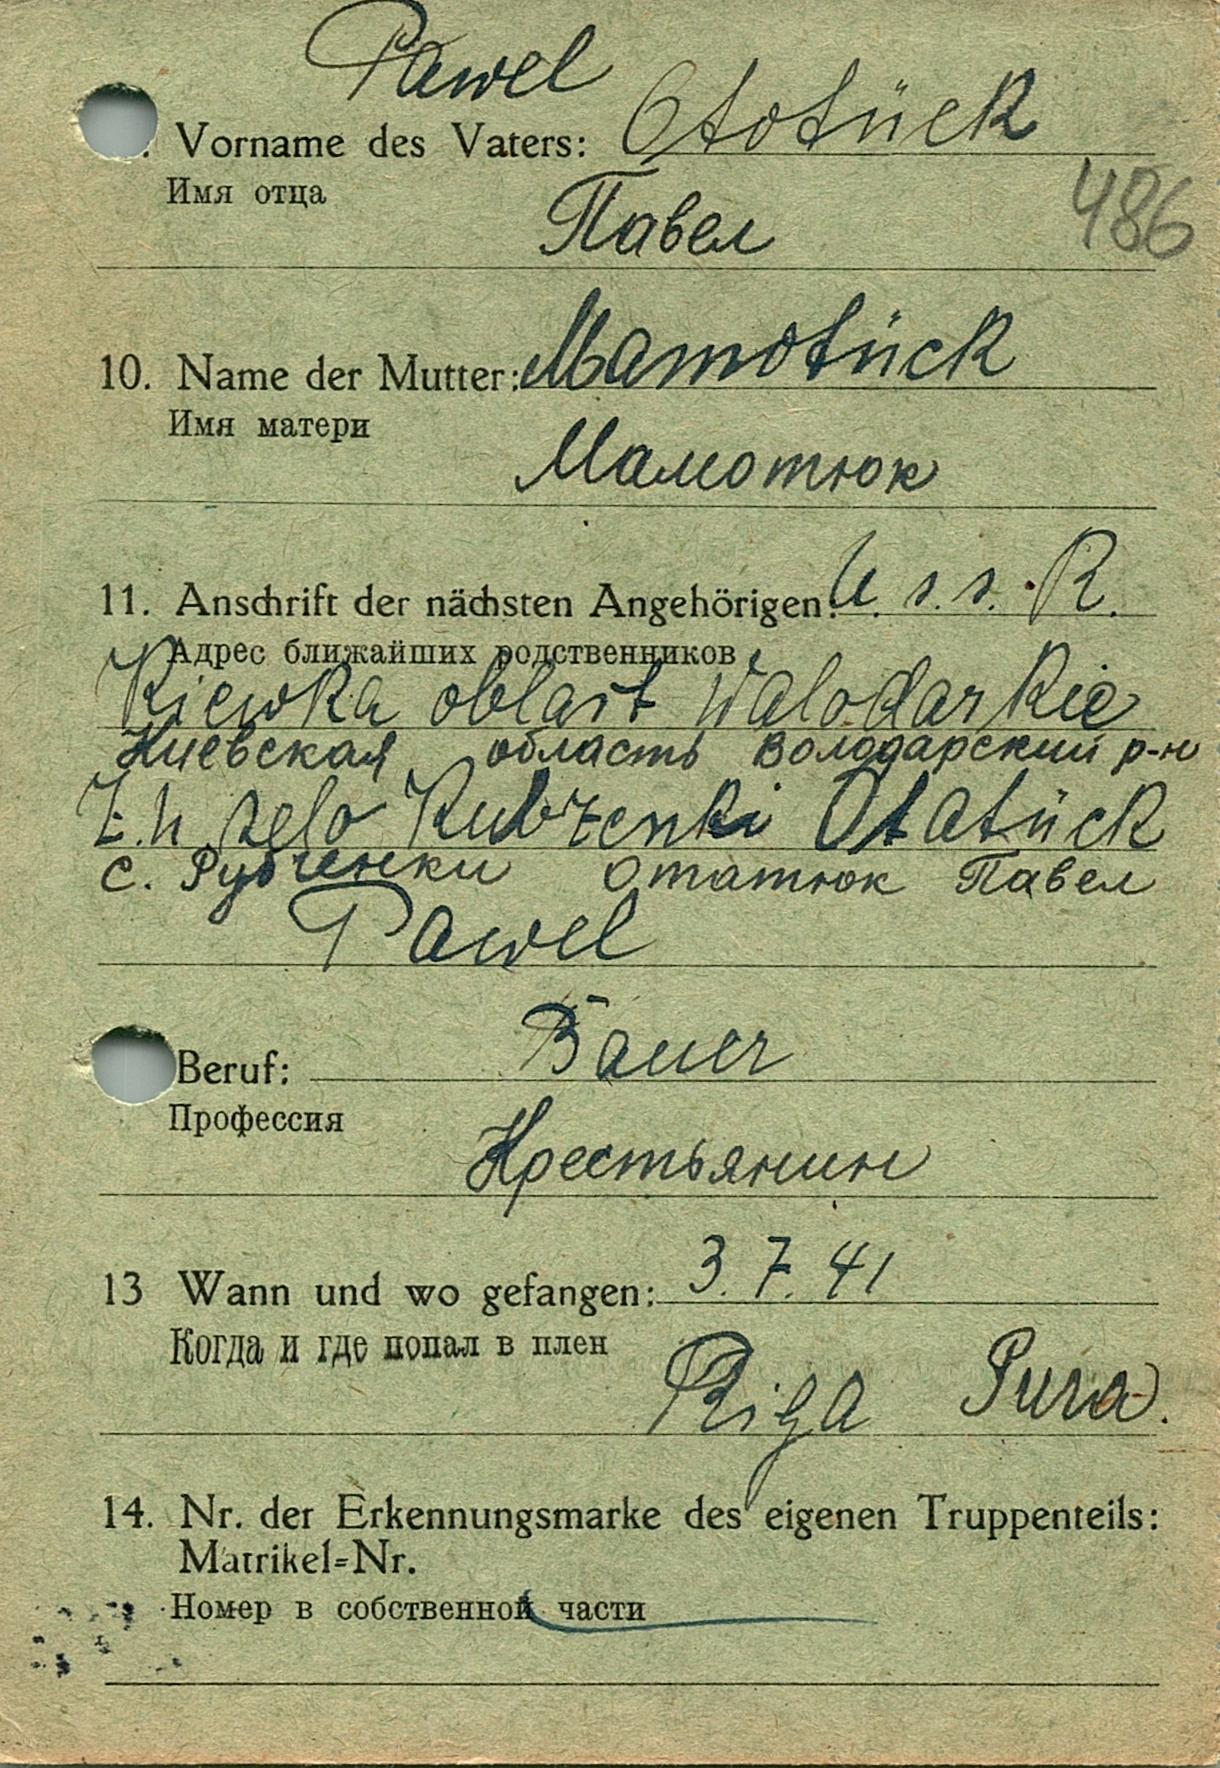 Pawel
. Vorname des Vaters: Ototück
Имя отца
Павел
486
10. Name der Mutter: Mamotück
Имя матери
Мамотюк
11. Anschrift der nächsten Angehörigen: U. s. s. R.
Адрес ближайших родственников
Kiewka oblast Walodarkie
Киевская область Володарский р-н
selo Rubzenki Otatück
с. Рубченки Отатюк Павел
Pawel
Beruf: Bauer
Профессия
Крестьянин
13 Wann und wo gefangen: 3. 7. 41
Когда и где попал в плен
Riga Pura.
14. Nr. der Erkennungsmarke des eigenen Truppenteils:
Matrikel=Nr.
Номер в собственной части